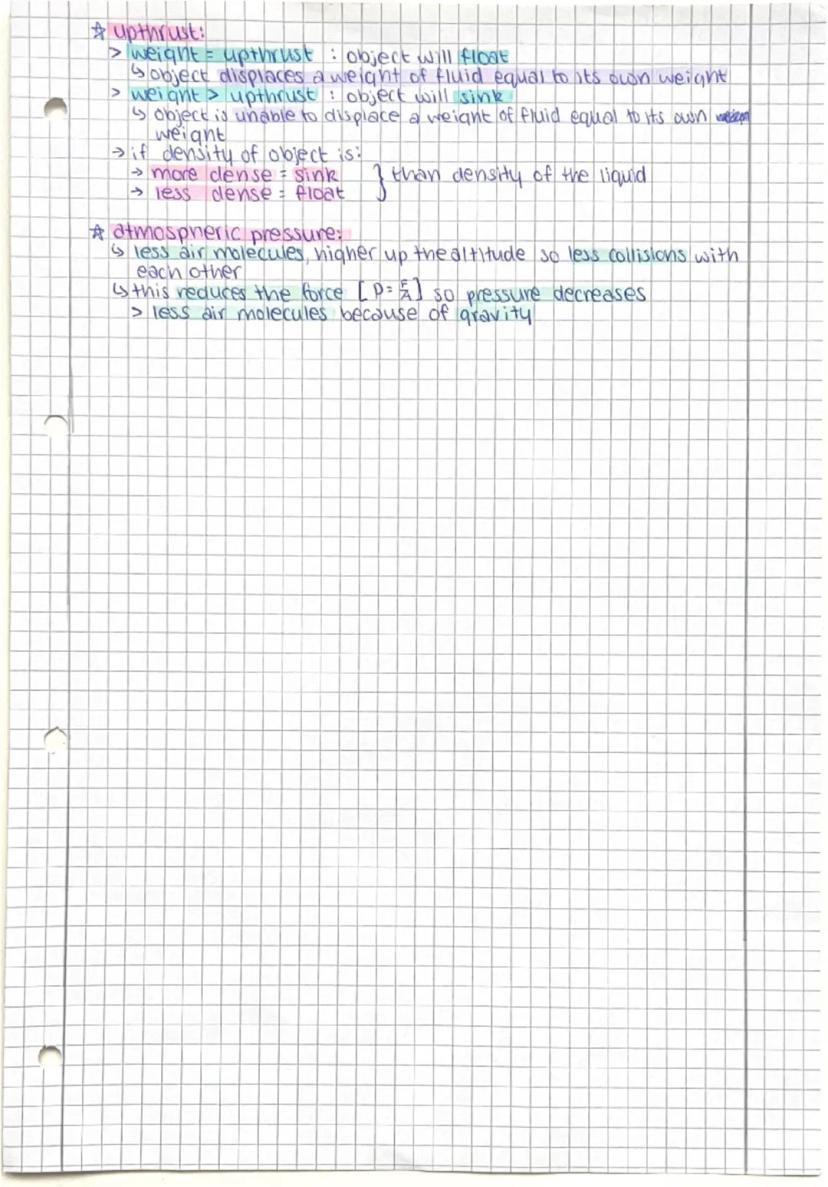 ☆ upthrust:
> weight = upthrust : object will float
↳ object displaces a weight of fluid equal to its own weight
> weight > upthrust : object will sink
↳ object is unable to displace a weight of fluid equal to its own
weight
→ if density of object is:
→ more dense = sink } than density of the liquid
→ less dense = float
☆ atmospheric pressure:
↳ less air molecules, higher up the altitude so less collisions with
each other
↳ this reduces the force [P = F/A] so pressure decreases
> less air molecules because of gravity